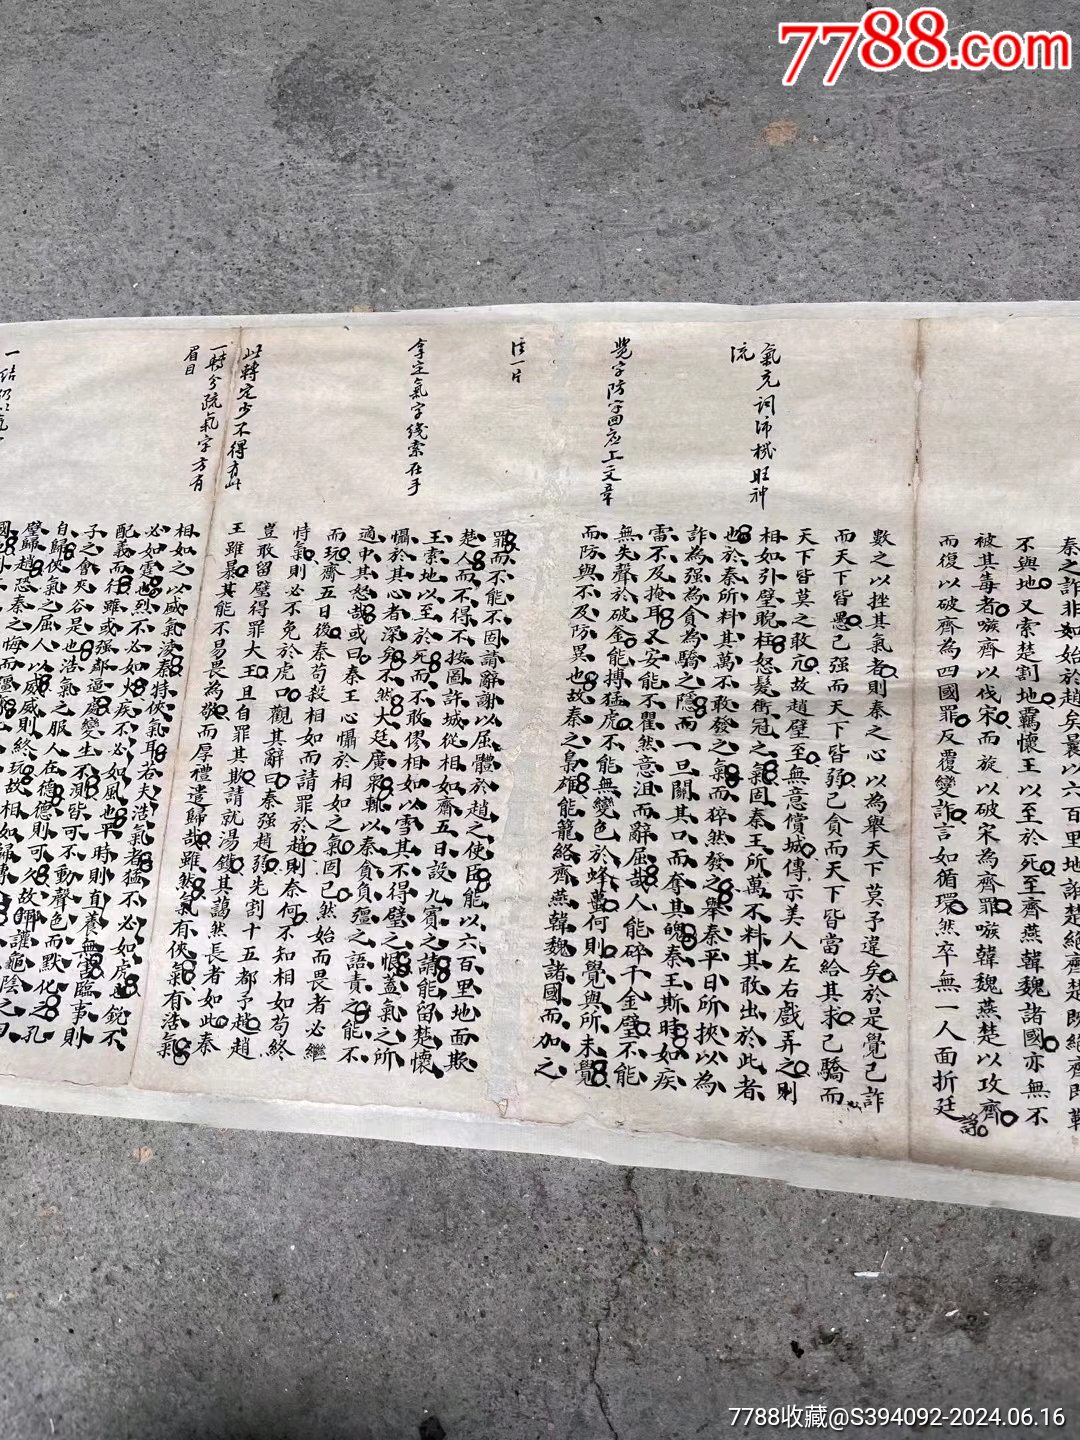 7788.com
秦之詐非如始於趙矣曩以六百里地詐楚絕齊楚既絕齊即靳
不與地又索楚割地覊懷王以至於死至齊燕韓魏諸國亦無不
被其毒者嗾齊以伐宋而旋以破宋為齊罪嗾韓魏燕楚以攻齊
而復以破齊為四國罪反覆變詐言如循環然卒無一人面折廷
諍
數之以挫其氣者則秦之心以為舉天下莫予違矣於是覺己詐
而天下皆愚己强而天下皆弱己貪而天下皆當給其求己驕而
天下皆莫之敢亢故趙璧至無意償城傳示美人左右戲弄之則
相如引璧睨柱怒髮衝冠之氣固秦王所萬不料其敢出於此者
也於秦所料其萬不敢發之氣而猝然發之舉秦平日所挾以為
詐為强為貪為驕之隱而一旦關其口而奪其魄秦王斯時如疾
雷不及掩耳又安能不瞿然意沮而辭屈哉人能碎千金璧不能
無失聲於破釜能搏猛虎不能無變色於蜂蠆何則覺與所未覺
而防與不及防異也故秦之梟雄能籠絡齊燕韓魏諸國而加之
罪而不能不固請辭謝以屈體於趙之使臣能以六百里地而欺
楚人而不得不按圖許城從相如齋五日設九賓之請能留楚懷
王索地以至於死而不敢僇相如以雪其不得璧之恨蓋氣之所
懾於其心者深矣不然大廷廣衆輒以秦貪負彊之語責之能不
適中其怒哉或曰秦王心懾於相如之氣固已然始而畏者必繼
而玩齊五日後秦苟殺相如而請罪於趙則奈何不知相如苟終
恃氣則必不免於虎口觀其辭曰秦强趙弱先割十五都予趙趙
豈敢留璧得罪大王且自罪其欺請就湯鑊其藹然長者如此秦
王雖暴其能不易畏為敬而厚禮遣歸哉雖然氣有俠氣有浩氣
相如之以威氣淩秦特俠氣耳若夫浩氣者猛不必如虎也銳不
必如雷也烈不必如火疾不必如風也平時則直養無害臨事則
配義而行雖或强鄰逼處變生不測皆可不動聲色而默化之孔
子之會夾谷是也浩氣之服人在德德則可久故歸讙龜陰之田
自歸俠氣之屈人以威威則終玩故相如歸
璧歸趙恐秦之悔而彊
氣充詞沛機旺神
流
覺字防字回应上文章
法一片
拿定氣字綫索在手
此轉定少不得有此
一轉分疏氣字方有
眉目
7788收藏@S394092-2024.06.16